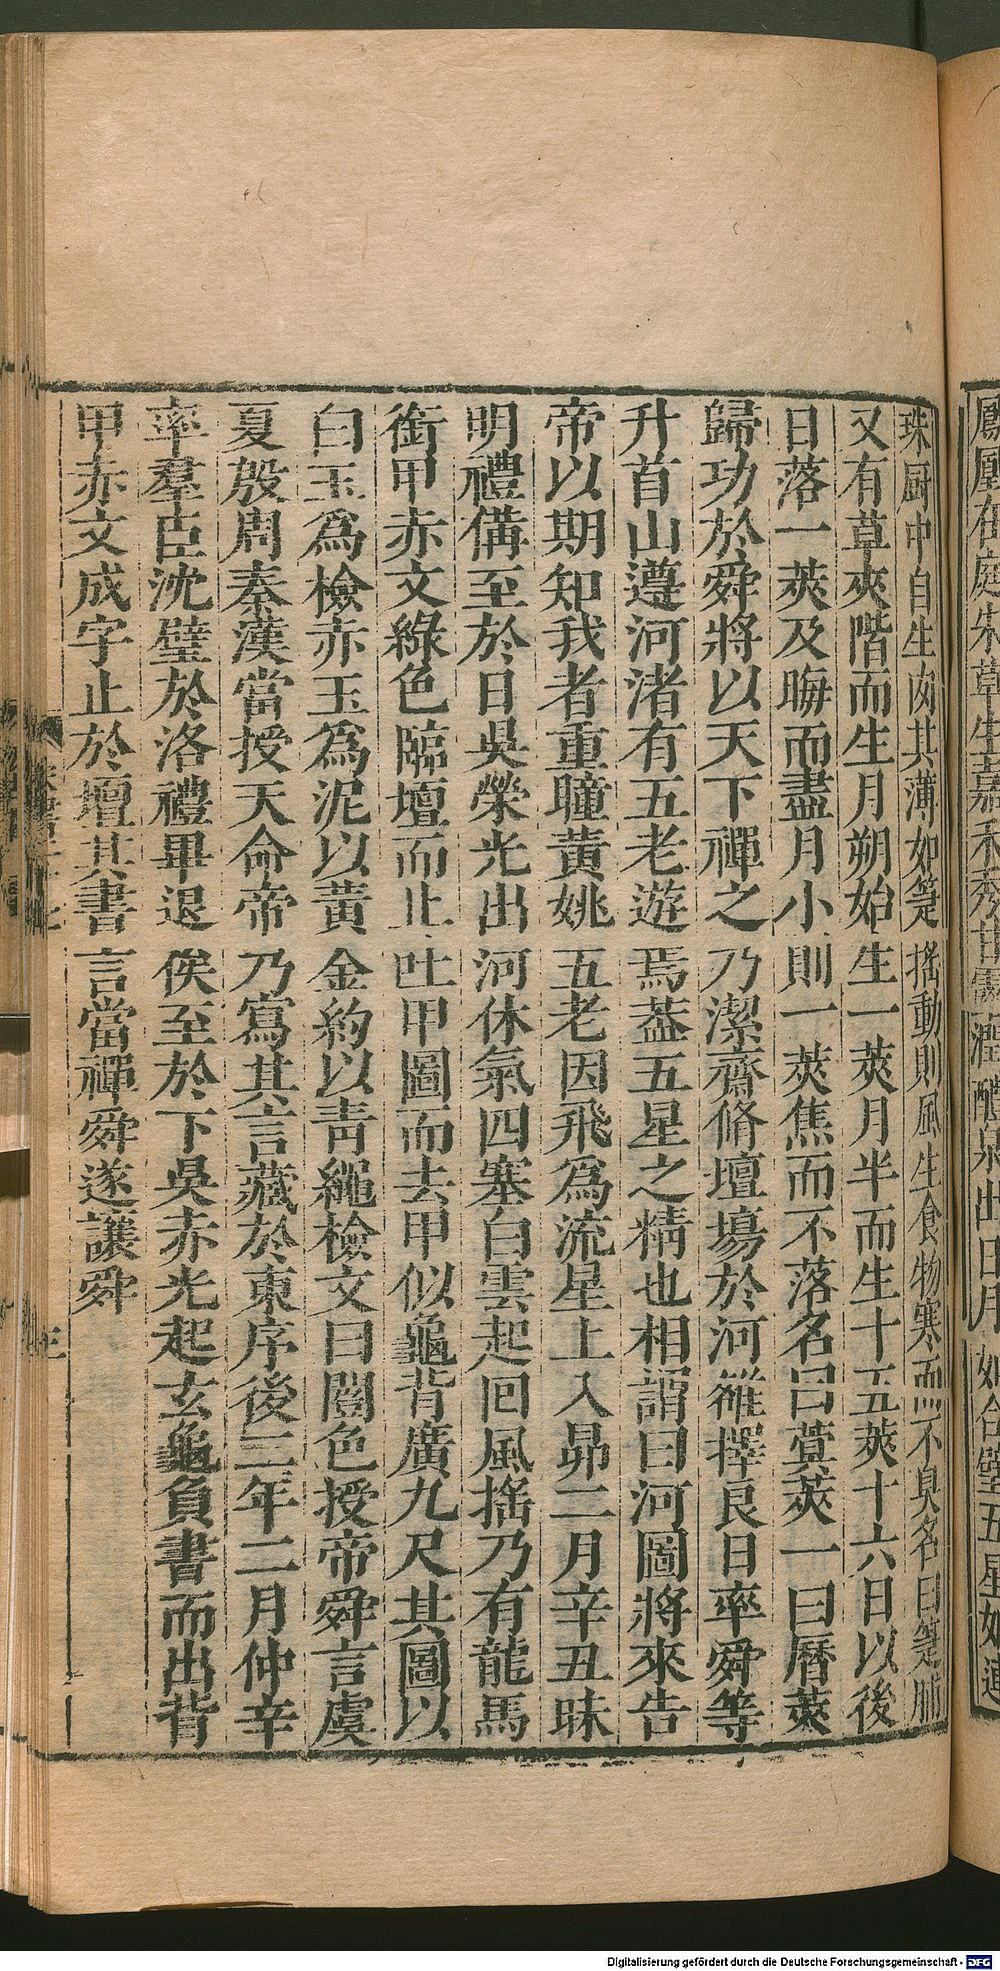 鳳凰在庭朱草生嘉禾秀甘露潤醴泉出日月如合璧五星如連
珠厨中自生肉其薄如箑搖動則風生食物寒而不臭名曰箑脯
又有草夾階而生月朔始生一莢月半而生十五莢十六日以後
日落一莢及晦而盡月小則一莢焦而不落名曰蓂莢一曰曆莢
歸功於舜將以天下禪之乃潔齋脩壇塲於河雒擇良日率舜等
升首山遵河渚有五老遊焉葢五星之精也相謂曰河圖將來告
帝以期知我者重瞳黃姚五老因飛爲流星上入昴二月辛丑昧
明禮備至於日昃榮光出河休氣四塞白雲起回風搖乃有龍馬
銜甲赤文綠色臨壇而止吐甲圖而去甲似龜背廣九尺其圖以
白玉爲檢赤玉爲泥以黃金約以靑繩檢文曰闓色授帝舜言虞
夏殷周秦漢當授天命帝乃寫其言藏於東序後二年二月仲辛
率羣臣沈璧於洛禮畢退俟至於下昃赤光起玄龜負書而出背
甲赤文成字止於壇其書言當禪舜遂讓舜
三
Digitalisierung gefördert durch die Deutsche Forschungsgemeinschaft - DFG